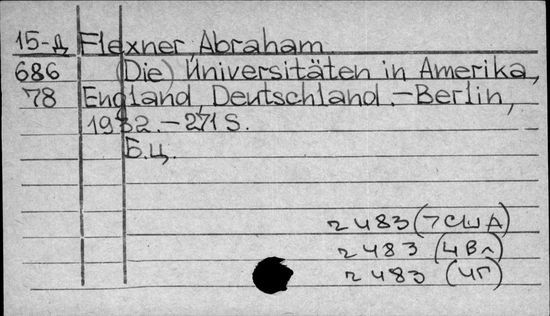 15-Д Flexner Abraham
686 (Die) Universitäten in Amerika,
78 England, Deutschland.-Berlin,
1932.-271 S.
Б.ц.
ч 483 (7США)
ч 483 (4Вл)
ч 483 (4Г)